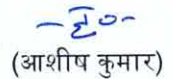 -ह०-
(आशीष कुमार)